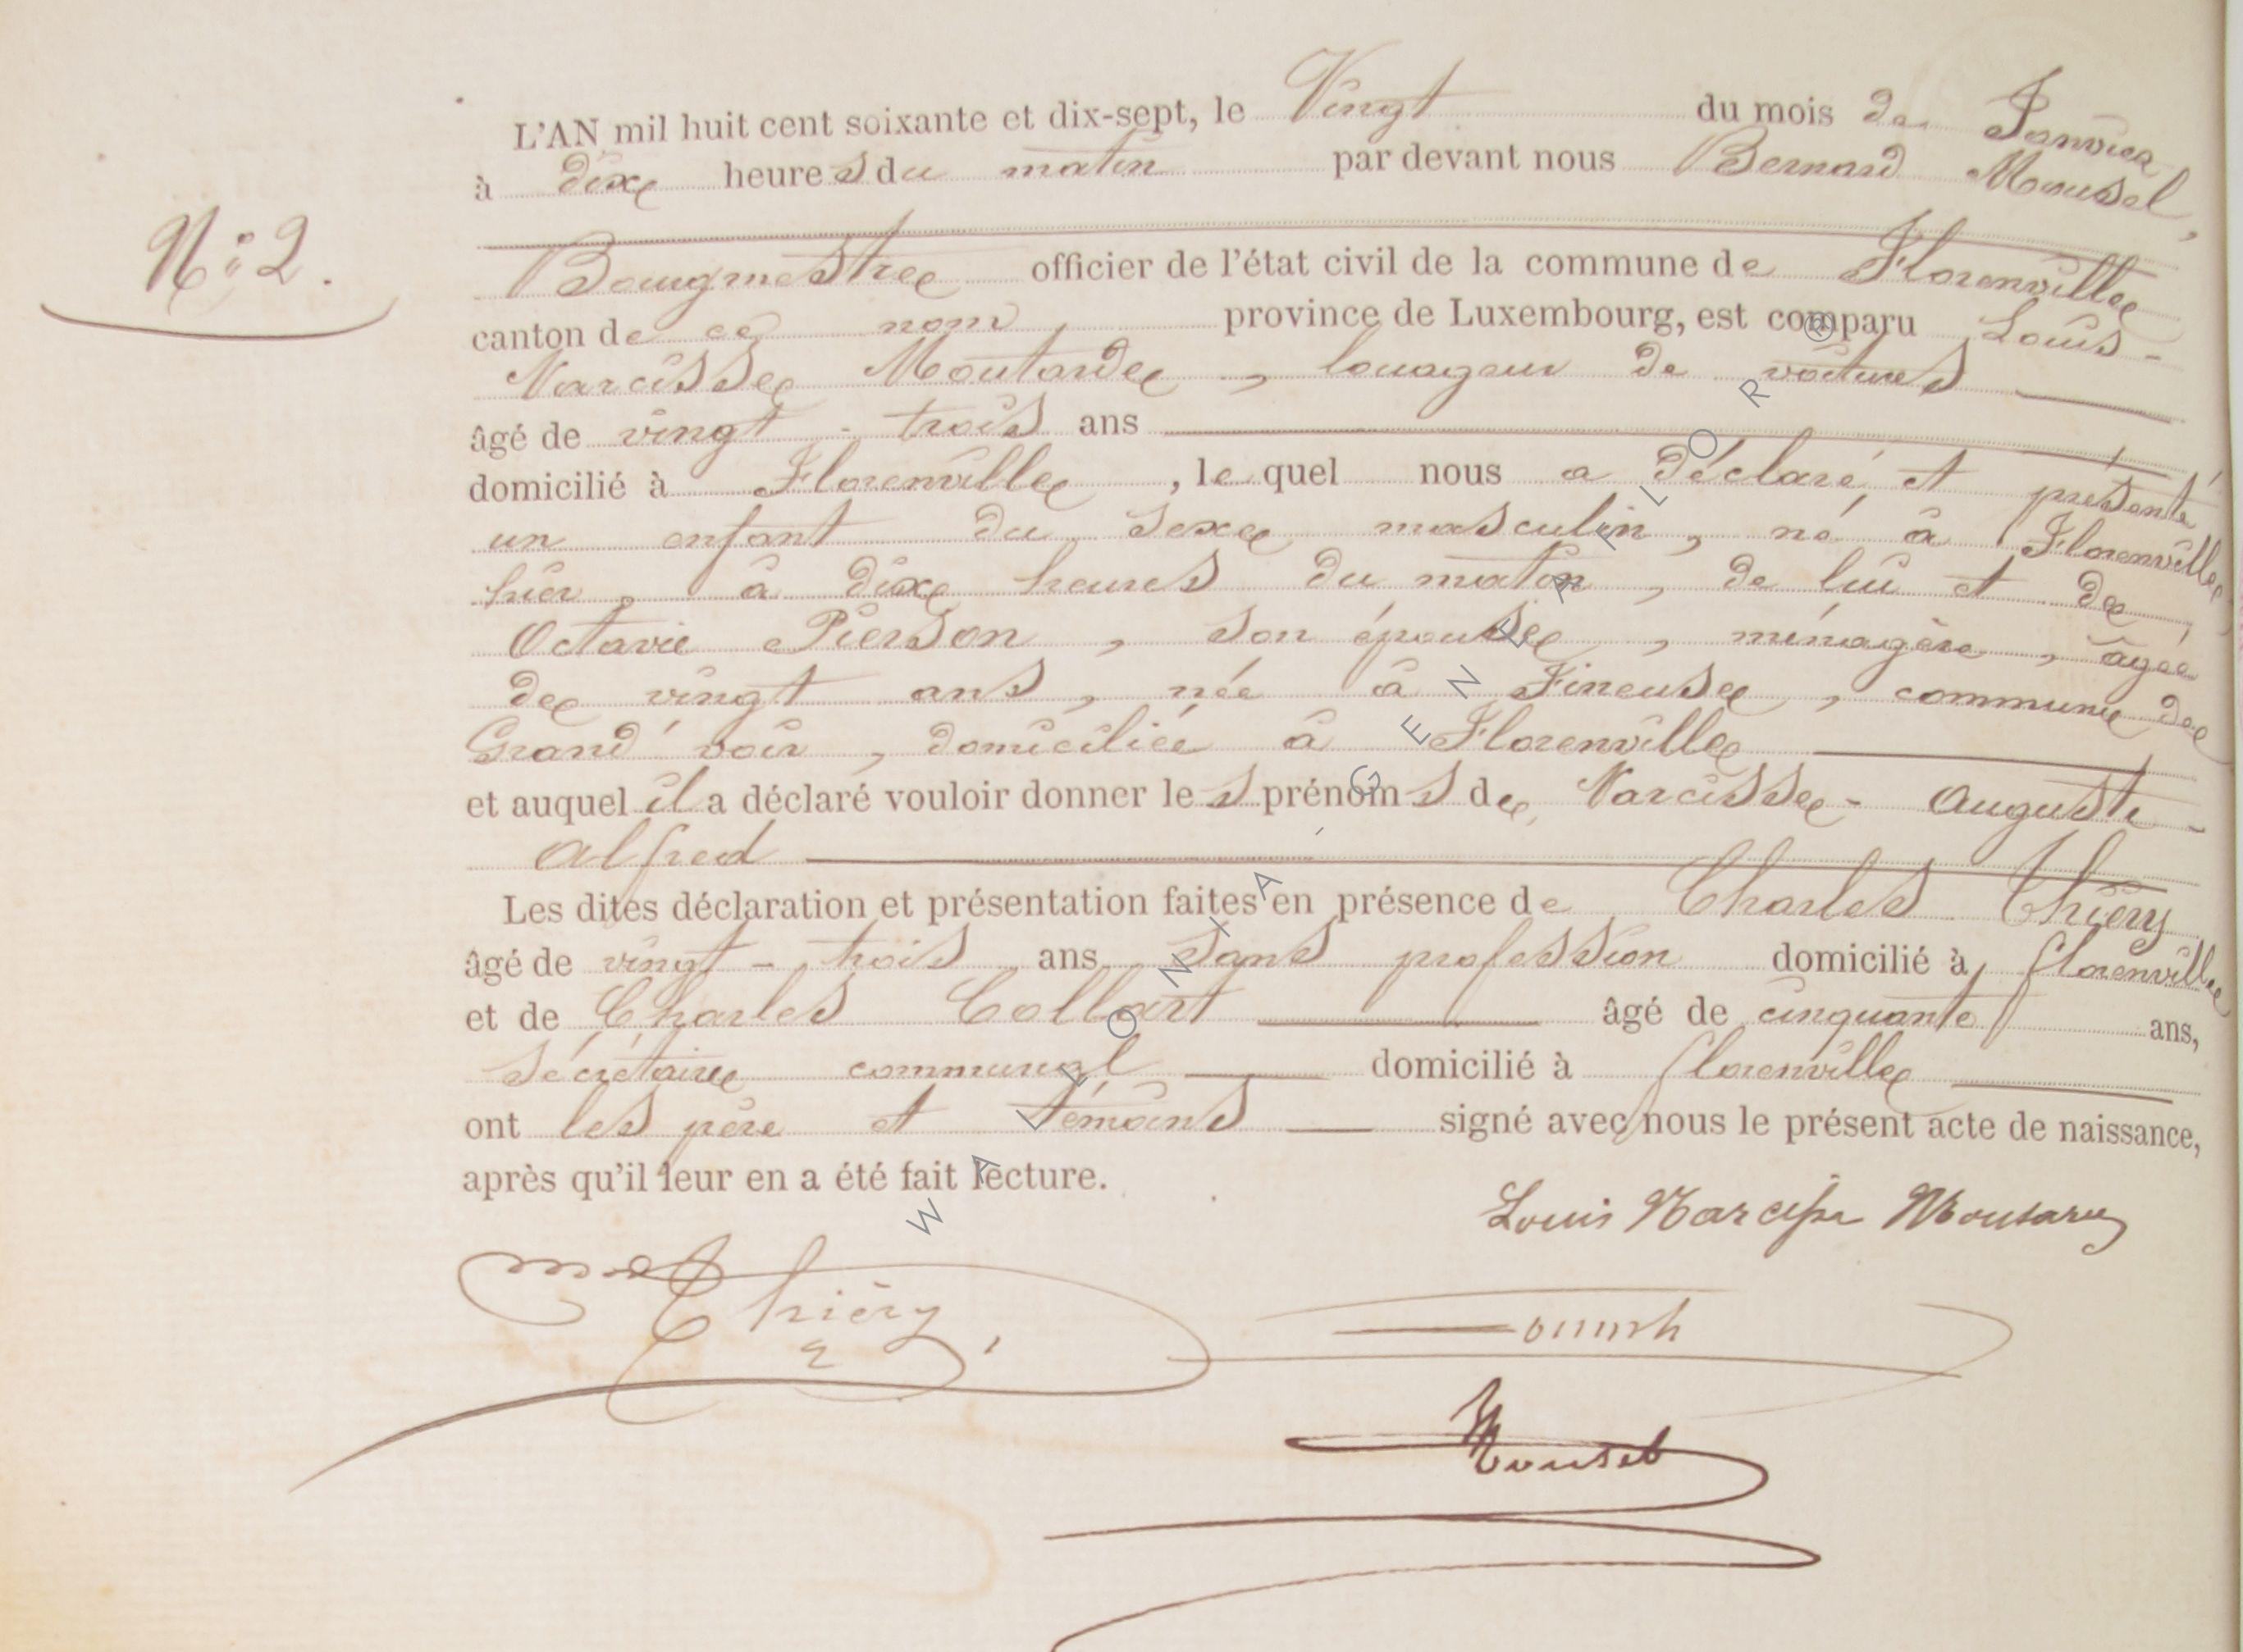 L'AN mil huit cent soixante et dix-sept, le Vingt du mois de Janvier
à dix heures du matin par devant nous Bernard Mousel,
N° 2.
Bourgmestre officier de l'état civil de la commune de Florenville
canton de ce nom, province de Luxembourg, est comparu Louis-
Narcisse Moutarde, louageur de voitures
âgé de vingt-trois ans
domicilié à Florenville, lequel nous a déclaré et présenté
un enfant du sexe masculin, né à Florenville,
hier, à dix heures du matin, de lui et de
Octavie Pierson, son épouse, ménagère, âgée
de vingt ans, née à Fineuse, commune de
Grand'voir, domiciliée à Florenville
et auquel il a déclaré vouloir donner les prénoms de Narcisse-Auguste-
Alfred
Les dites déclaration et présentation faites en présence de Charles Thiery
âgé de vingt-trois ans sans profession domicilié à florenville
et de Charles Collart âgé de cinquante ans,
sécrétaire communal domicilié à florenville
ont les père et témoins signé avec nous le présent acte de naissance,
après qu'il leur en a été fait lecture.
Louis Narcisse Moutarde
Thiéry
Mousel
WALLONIA GENEAFLOR®